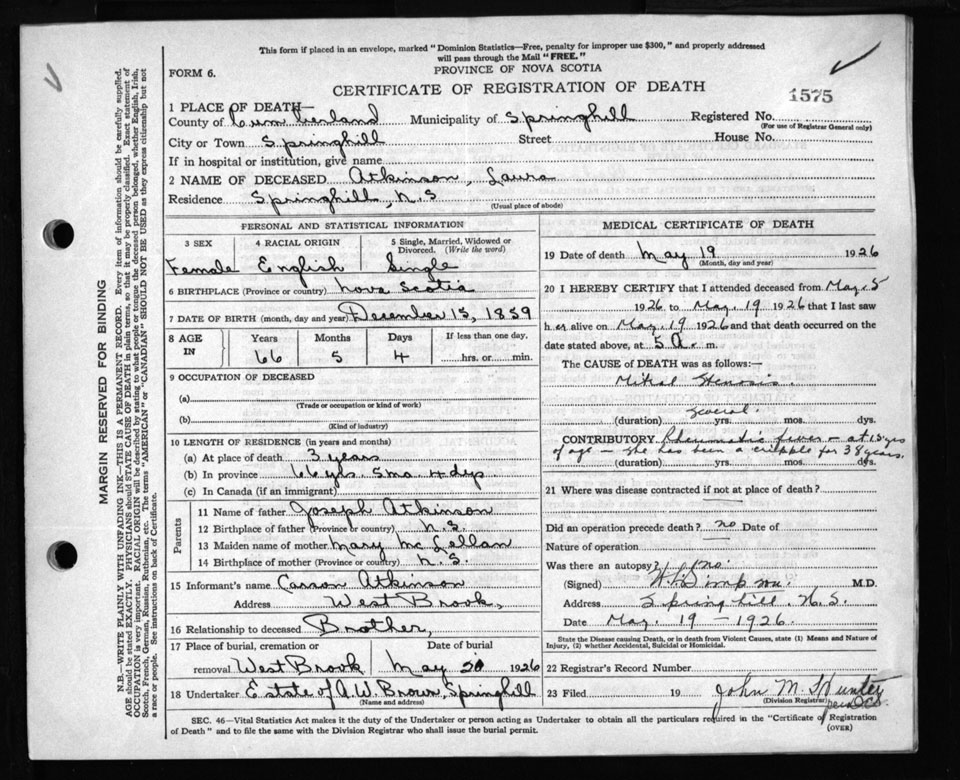 This form if placed in an envelope, marked "Dominion Statistics—Free, penalty for improper use $300," and properly addressed
will pass through the Mail "FREE."
FORM 6.
PROVINCE OF NOVA SCOTIA
CERTIFICATE OF REGISTRATION OF DEATH
1575
1 PLACE OF DEATH—
County of Cumberland Municipality of Springhill Registered No.
(For use of Registrar General only)
City or Town Springhill Street House No.
If in hospital or institution, give name
2 NAME OF DECEASED Atkinson, Laura
Residence Springhill, N.S
(Usual place of abode)
MARGIN RESERVED FOR BINDING
N.B.—WRITE PLAINLY WITH UNFADING INK—THIS IS A PERMANENT RECORD. Every item of information should be carefully supplied.
AGE should be stated EXACTLY. PHYSICIANS should STATE CAUSE OF DEATH in plain terms, so that it may be properly classified. Exact statement of
OCCUPATION is very important. RACIAL ORIGIN will be described by stating to what people or tongue the deceased person belonged, whether English, Irish,
Scotch, French, German, Russian, Ruthenian, etc. The terms "AMERICAN" or "CANADIAN" SHOULD NOT BE USED as they express citizenship but not
a race or people. See instructions on back of Certificate.
PERSONAL AND STATISTICAL INFORMATION
3 SEX 4 RACIAL ORIGIN 5 Single, Married, Widowed or
Divorced. (Write the word)
Female English Single
6 BIRTHPLACE (Province or country) Nova Scotia
7 DATE OF BIRTH (month, day and year) December 15, 1859
8 AGE IN Years Months Days If less than one day,
66 5 4 hrs. or min.
9 OCCUPATION OF DECEASED
(a)
(Trade or occupation or kind of work)
(b)
(Kind of industry)
10 LENGTH OF RESIDENCE (in years and months)
(a) At place of death 3 years
(b) In province 66 yrs. 5 mo. 4 dys
(c) In Canada (if an immigrant)
Parents
11 Name of father Joseph Atkinson
12 Birthplace of father (Province or country) N.S.
13 Maiden name of mother Mary McLellan
14 Birthplace of mother (Province or country) N.S.
15 Informant's name Carson Atkinson
Address West Brook,
16 Relationship to deceased Brother,
17 Place of burial, cremation or Date of burial
removal West Brook May 20 1926
18 Undertaker Estate of A.W. Brown, Springhill
(Name and address)
MEDICAL CERTIFICATE OF DEATH
19 Date of death May 19 1926
(Month, day and year)
20 I HEREBY CERTIFY that I attended deceased from May 5
1926 to May 19 1926 that I last saw
her alive on May 19 1926 and that death occurred on
date stated above, at 5 a. m.
The CAUSE of DEATH was as follows:—
Mitral Stenosis.
Several.
(duration) yrs. mos. dys.
CONTRIBUTORY Rheumatic fever - at 15 yrs
of age - She has been a cripple for 38 years.
(duration) yrs. mos. dys.
21 Where was disease contracted if not at place of death?
Did an operation precede death? no Date of
Nature of operation
Was there an autopsy? no
(Signed) M.D.
Address Springhill N.S
Date May 19 - 1926.
State the Disease causing Death, or in death from Violent Causes, state (1) Means and Nature of
Injury, (2) whether Accidental, Suicidal or Homicidal.
22 Registrar's Record Number
23 Filed 19 John M. Hunter
(Division Registrar)
SEC. 46—Vital Statistics Act makes it the duty of the Undertaker or person acting as Undertaker to obtain all the particulars required in the "Certificate of Registration
of Death" and to file the same with the Division Registrar who shall issue the burial permit.
(OVER)